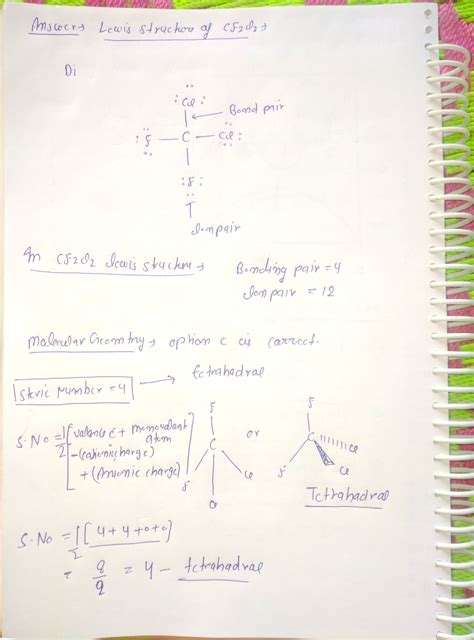 Answer → Lewis structure of CF2Cl2 →
Di
:Cl:
Bond pair
:F — C — Cl:
:F:
lonpair
In CF2Cl2 lewis structure → Bonding pair = 4
lonpair = 12
Molecular Geometry → option C is correct.
Steric Number = 4 → tetrahedral
S.No = 1/2 [valance e + monovalent atom
- (cationic charge)
+ (Anionic charge)]
F
C
F
Cl
Cl
or
F
C
F
Cl
Cl
Tetrahedral
S.No = 1/2 [4 + 4 + 0 + 0]
= 8/2 = 4 - tetrahedral